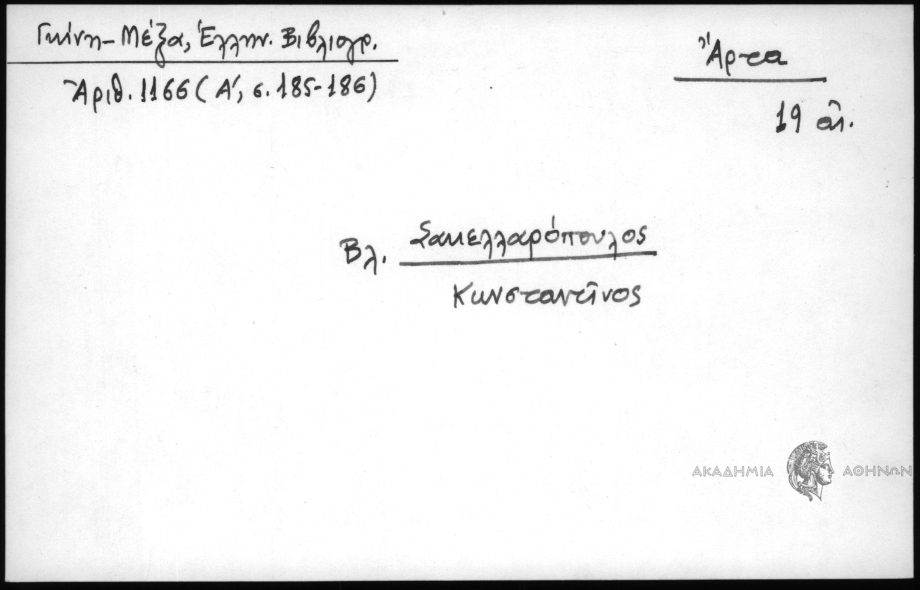 Γκίνη-Μέξα, Ἑλλην. Βιβλιογρ.
Ἀριθ. 1166 (Α', σ. 185-186)
Ἄρτα
19 αἰ.
Βλ. Σακελλαρόπουλος
Κωνσταντῖνος
ΑΚΑΔΗΜΙΑ ΑΘΗΝΩΝ